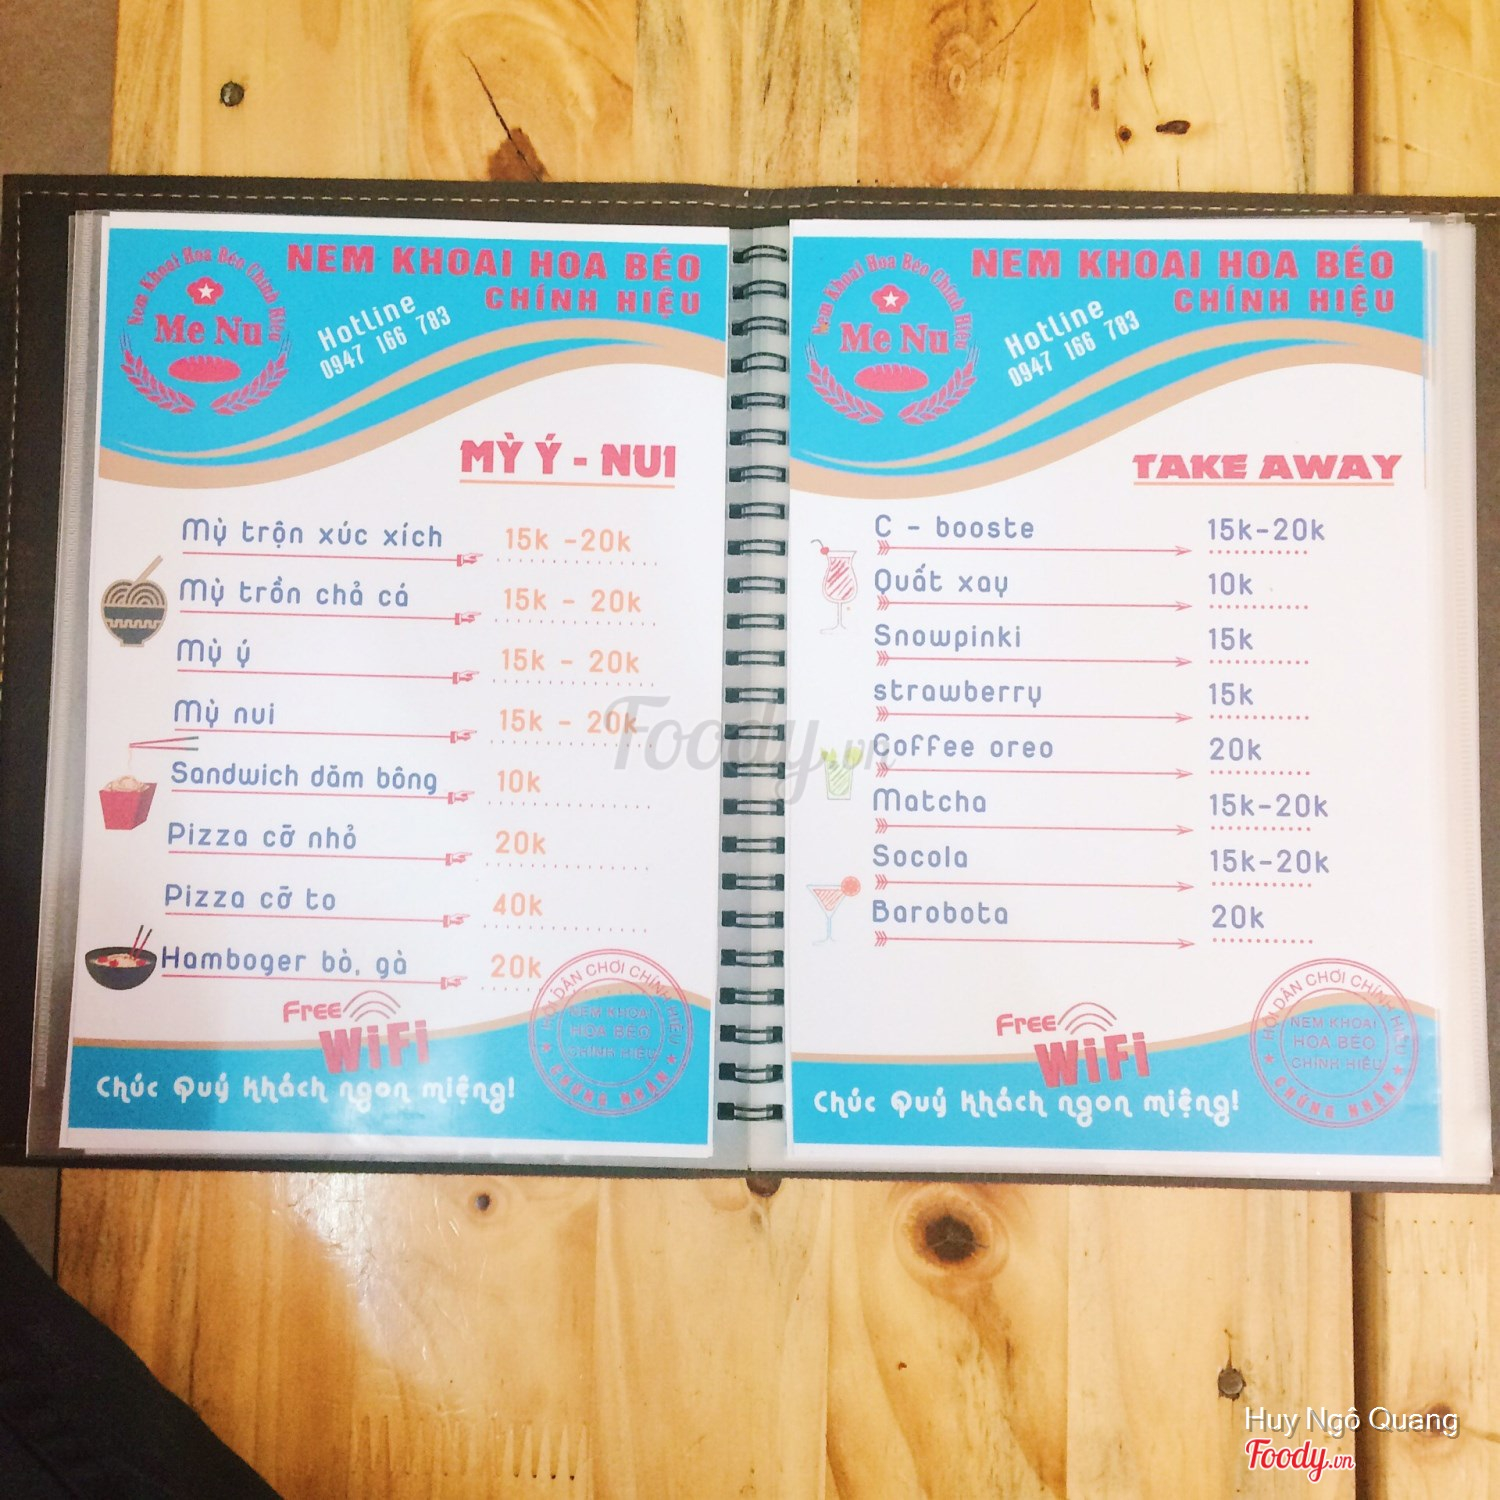 Nem Khoai Hoa Béo Chính Hiệu
Me Nu
NEM KHOAI HOA BÉO
CHÍNH HIỆU
Hotline
0947 166 783
MỲ Ý - NUI
Mỳ trộn xúc xích 15k -20k
Mỳ trồn chả cá 15k - 20k
Mỳ ý 15k - 20k
Mỳ nui 15k - 20k
Sandwich dăm bông 10k
Pizza cỡ nhỏ 20k
Pizza cỡ to 40k
Hamboger bò, gà 20k
Free
WiFi
Chúc Quý khách ngon miệng!
HỘI DÂN CHƠI CHÍNH HIỆU
NEM KHOAI
HOA BÉO
CHÍNH HIỆU
CHỨNG NHẬN
Nem Khoai Hoa Béo Chính Hiệu
Me Nu
NEM KHOAI HOA BÉO
CHÍNH HIỆU
Hotline
0947 166 783
TAKE AWAY
C - booste 15k-20k
Quất xay 10k
Snowpinki 15k
strawberry 15k
Coffee oreo 20k
Matcha 15k-20k
Socola 15k-20k
Barobota 20k
Free
WiFi
Chúc Quý khách ngon miệng!
HỘI DÂN CHƠI CHÍNH HIỆU
NEM KHOAI
HOA BÉO
CHÍNH HIỆU
CHỨNG NHẬN
Foody.vn
Huy Ngô Quang
Foody.vn